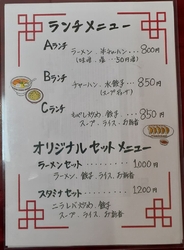 ランチメニュー
Aランチ
ラーメン、半チャーハン・・・・800円
Bランチ
チャーハン、水餃子・・・850円
(スープ
Cランチ
もやし炒め、餃子・・・850円
スープ、ライス、お新香
オリジナルセットメニュー
ラーメンセット・・・・・・1,000円
ラーメン、餃子、ライス、お新香
スタミナセット・・・・・・1,200円
ニラレバ炒め、餃子
スープ、ライス、お新香